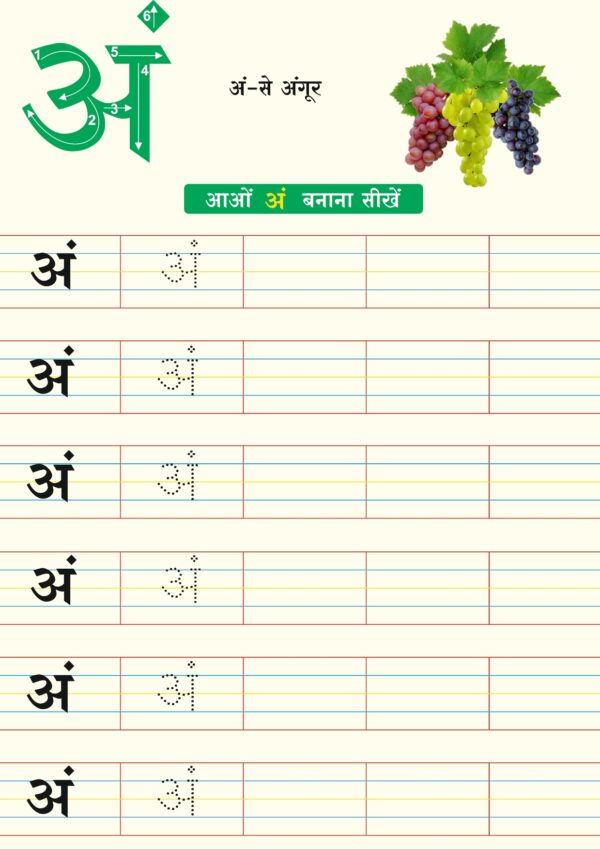 अं
1 2 3 4 5 6
अं-से अंगूर
आओं अं बनाना सीखें
अं अं
अं अं
अं अं
अं अं
अं अं
अं अं